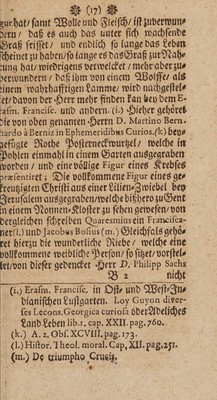 (17)
gur hat/ samt Wolle und Fleisch/ ist zuverwun-
dern/ daß es auch das unter sich wachsende
Graß frisset/ und endlich so lange das Leben
scheinet zu haben/ so lange es das Graß zur Nah-
rung hat/ wiedriges verwelcket/ mehr aber zu-
verwundern/ daß ihm von einem Wolffe/ als
einem wahrhafftigen Lamme/ wird nachgestel-
let/ davon der Herr mehr finden kan bey dem E-
rasm. Francisc. und andern. (i.) Hieher gehöret
die von oben genanten Herrn D. Martino Bern-
hardo à Berniz in Ephemeridibus Curios. (k) bey-
gefügte Rothe Posterneckwurtzel/ welche in
Pohlen einmahl in einem Garten ausgegraben
worden/ und eine völlige Figur eines Krebses
præsentiret; Die vollkommene Figur eines ge-
kreutzigten Christi aus einer Lilien-Zwiebel bey
Jerusalem ausgegraben/ welche bißhero zu Gent
in einem Nonnen-Kloster zu sehen gewesen/ von
dergleichen schreiben Quaresmius ein Francisca-
ner (l.) und Jacobus Bosius (m.) Gleichfals gehö-
ret hierzu die wunderliche Riebe/ welche eine
vollkommene weibliche Person/ so sitzet/ vorstel-
let/ von dieser gedencker Herr D. Philipp Sachs
B 2 nicht
(i.) Erasm. Francisc. in Ost- und West-In-
dianischen Lustgarten. Loy Guyon diver-
ses Lecons. Georgica curiosa oder Adeliches
Land Leben lib. 1. cap. XXII. pag. 760.
(k.) A. 2. Obs. XCVIII. pag. 173.
(l.) Histor. Theol. moral. Cap, XII. pag. 251.
(m.) De triumpho Crucis.